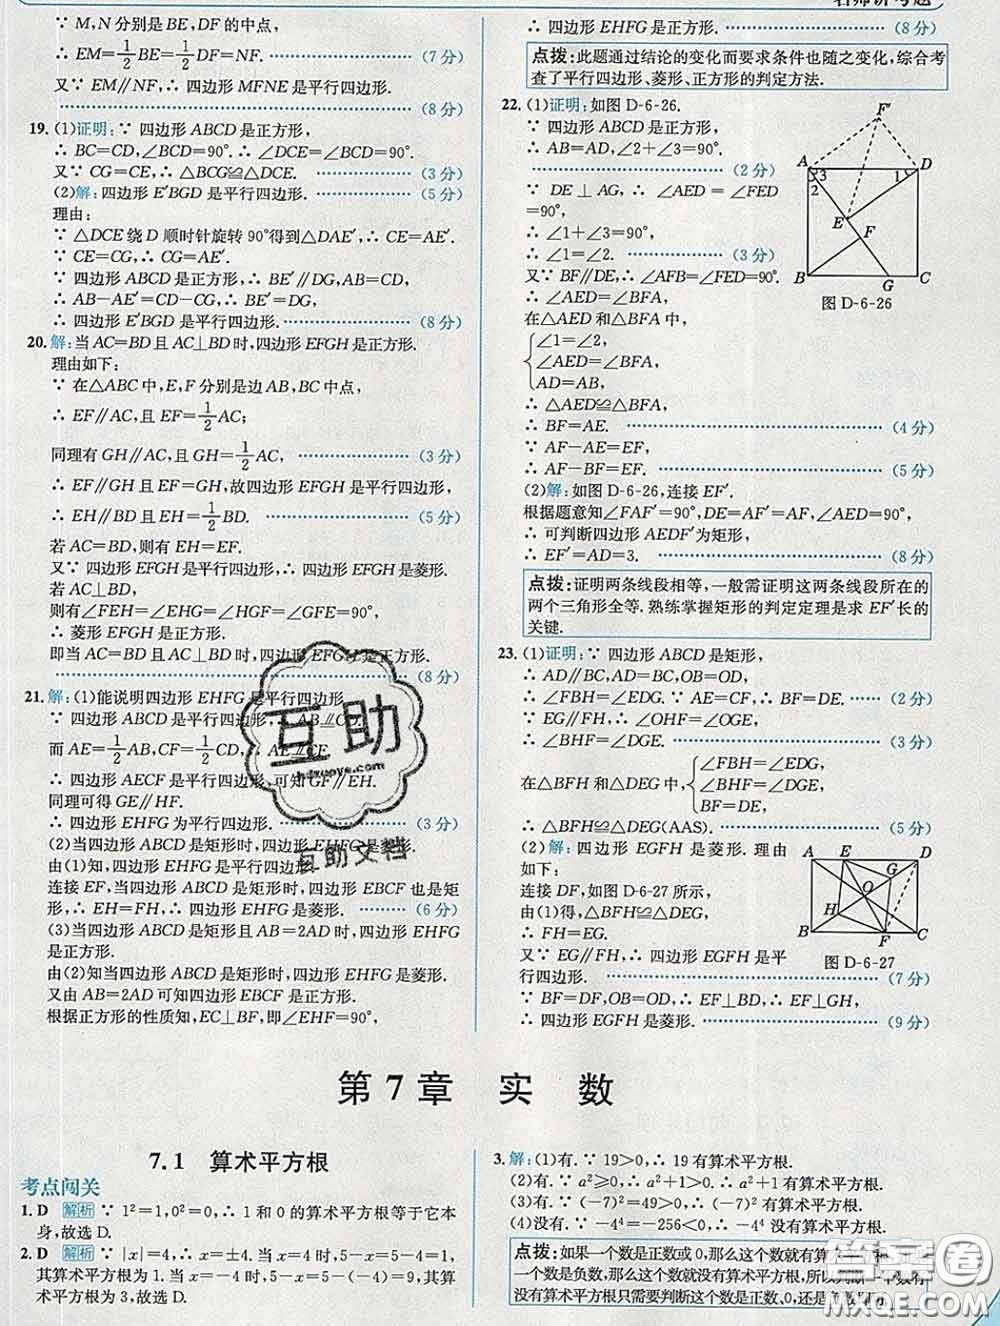 ∵ M,N分别是BE,DF的中点,
∴ EM=1/2BE=1/2DF=NF. (7分)
又∵ EM∥NF,∴ 四边形MFNE是平行四边形.
(8分)
19. (1)证明:∵ 四边形ABCD是正方形,
∴ BC=CD,∠BCD=90°.∴ ∠DCE=∠BCD=90°.
又∵ CG=CE,∴ △BCG≌△DCE. (3分)
(2)解:四边形E′BGD是平行四边形.
理由:
∵ △DCE绕D顺时针旋转90°得到△DAE′,∴ CE=AE′.
∵ CE=CG,∴ CG=AE′.
∵ 四边形ABCD是正方形,∴ BE′∥DG,AB=CD.
∴ AB-AE′=CD-CG,∴ BE′=DG,
∴ 四边形E′BGD是平行四边形. (8分)
20. 解:当AC=BD且AC⊥BD时,四边形EFGH是正方形.
理由如下:
∵ 在△ABC中,E,F分别是边AB,BC中点,
∴ EF∥AC,且EF=1/2AC;
同理有GH∥AC,且GH=1/2AC, (3分)
∴ EF∥GH且EF=GH,故四边形EFGH是平行四边形.
∴ EH∥BD且EH=1/2BD. (5分)
若AC=BD,则有EH=EF.
又∵ 四边形EFGH是平行四边形,∴ 四边形EFGH是菱形.
若AC⊥BD,
则有∠FEH=∠EHG=∠HGF=∠GFE=90°.
∴ 菱形EFGH是正方形.
即当AC=BD且AC⊥BD时,四边形EFGH是正方形.
(8分)
21. 解:(1)能说明四边形EHFG是平行四边形.
∵ 四边形ABCD是平行四边形,∴ AB∥CD.
而AE=1/2AB,CF=1/2CD,∴ AE∥CF.
∴ 四边形AECF是平行四边形,可知GF∥EH.
同理可得GE∥HF.
∴ 四边形EHFG为平行四边形. (3分)
(2)当四边形ABCD是矩形时,四边形EHFG是菱形.
由(1)知,四边形EHFG是平行四边形.
连接EF,当四边形ABCD是矩形时,四边形EBCF也是矩
形,∴ EH=FH,∴ 四边形EHFG是菱形. (6分)
(3)当四边形ABCD是矩形且AB=2AD时,四边形EHFG
是正方形.
由(2)知当四边形ABCD是矩形时,四边形EHFG是菱形.
又由AB=2AD可知四边形EBCF是正方形.
根据正方形的性质知,EC⊥BF,即∠EHF=90°,
∴ 四边形EHFG是正方形. (8分)
点拨:此题通过结论的变化而要求条件也随之变化,综合考
查了平行四边形、菱形、正方形的判定方法.
22. (1)证明:如图D-6-26.
∵ 四边形ABCD是正方形,
∴ AB=AD,∴ ∠2+∠3=90°.
(2分)
∵ DE⊥AG,∴ ∠AED=∠FED
=90°.
∴ ∠1+∠3=90°.
∴ ∠1=∠2. (3分)
又∵ BF∥DE,∴ ∠AFB=∠FED=90°.
∴ ∠AED=∠BFA.
在△AED和△BFA中,
∠1=∠2,
∠AED=∠BFA,
AD=AB,
∴ △AED≌△BFA,
∴ BF=AE. (4分)
∵ AF-AE=EF,
∴ AF-BF=EF. (5分)
(2)解:如图D-6-26,连接EF′.
根据题意知∠FAF′=90°,DE=AF′=AF,
∴ 可判断四边形AEDF′为矩形,
∴ EF′=AD=3. (8分)
点拨:证明两条线段相等,一般需证明这两条线段所在的
两个三角形全等.熟练掌握矩形的判定定理是求EF′长的
关键.
F′
A
3
2
1
D
E
F
B
G
C
图D-6-26
23. (1)证明:∵ 四边形ABCD是矩形,
∴ AD∥BC,AD=BC,OB=OD,
∴ ∠FBH=∠EDG.∵ AE=CF,∴ BF=DE. (2分)
∵ EG∥FH,∴ ∠OHF=∠OGE,
∴ ∠BHF=∠DGE. (3分)
在△BFH和△DEG中,
∠FBH=∠EDG,
∠BHF=∠DGE,
BF=DE,
∴ △BFH≌△DEG(AAS). (5分)
(2)解:四边形EGFH是菱形.理由
如下:
连接DF,如图D-6-27所示,
由(1)得,△BFH≌△DEG,
∴ FH=EG.
又∵ EG∥FH,∴ 四边形EGFH是平
行四边形. (7分)
∵ BF=DF,OB=OD,∴ EF⊥BD,∴ EF⊥GH,
∴ 四边形EGFH是菱形. (9分)
A
E
D
G
O
H
B
F
C
图D-6-27
第7章 实 数
7.1 算术平方根
考点闯关
1. D 解析 ∵ 1²=1,0²=0,∴ 1和0的算术平方根等于它本
身,故选D.
2. D 解析 ∵ |x|=4,∴ x=±4.当x=4时,5-x=5-4=1,
其算术平方根为1.当x=-4时,5-x=5-(-4)=9,其算
术平方根为3,故选D.
3. 解:(1)有.∵ 19>0,∴ 19有算术平方根.
(2)有.∵ a²≥0,∴ a²+1>0.∴ a²+1有算术平方根.
(3)有.∵ (-7)²=49>0,∴ (-7)²有算术平方根.
(4)没有.∵ -4⁴=-256<0,∴ -4⁴没有算术平方根.
点拨:如果一个数是正数或0,那么这个数就有算术平方根;
一个数是负数,那么这个数就没有算术平方根,所以判断一个数有
没有算术平方根只需要判断这个数是正数、0,还是负数即可.
互助
hdzuoye.com
互助文档
答案卷